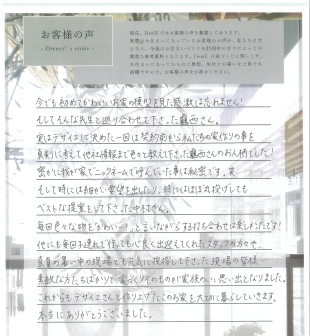 お客様の声
- Owner's voice -
今でも初めてかわいいお家の模型を見た感激は忘れません!
そしてそんな先生と巡り合わせて下さった龍西さん。
実はデザイエに決めた一因は契約前から私たちの家作りの事を
真剣に考えて他社情報まで色々と教えて下さった龍西さんのお人柄でした!
密かに我が家でニックネームで呼んでいた事は秘密です。笑
そして時には細かい要望を出したり、時にはほぼ丸投げしても
ベストな提案をして下さった中村さん。
毎回色々な物を「かわいー!」と言いながらする打ち合わせは楽しかったです!
他にも毎回子連れで行っても心良く出迎えてくれたスタッフの方々や、
真夏の暑い中の現場でも元気に挨拶して下さった現場の皆様…
素敵な方たちばかりで家づくりそのものが家族のいい思い出となりました。
これからもデザイエさんと作り上げたこのお家を大切に暮らしていきます。
本当にありがとうございました。